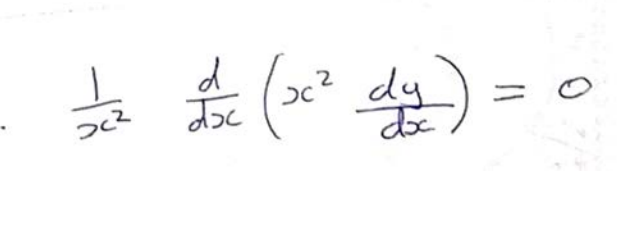 . 1/x² d/dx (x² dy/dx) = 0